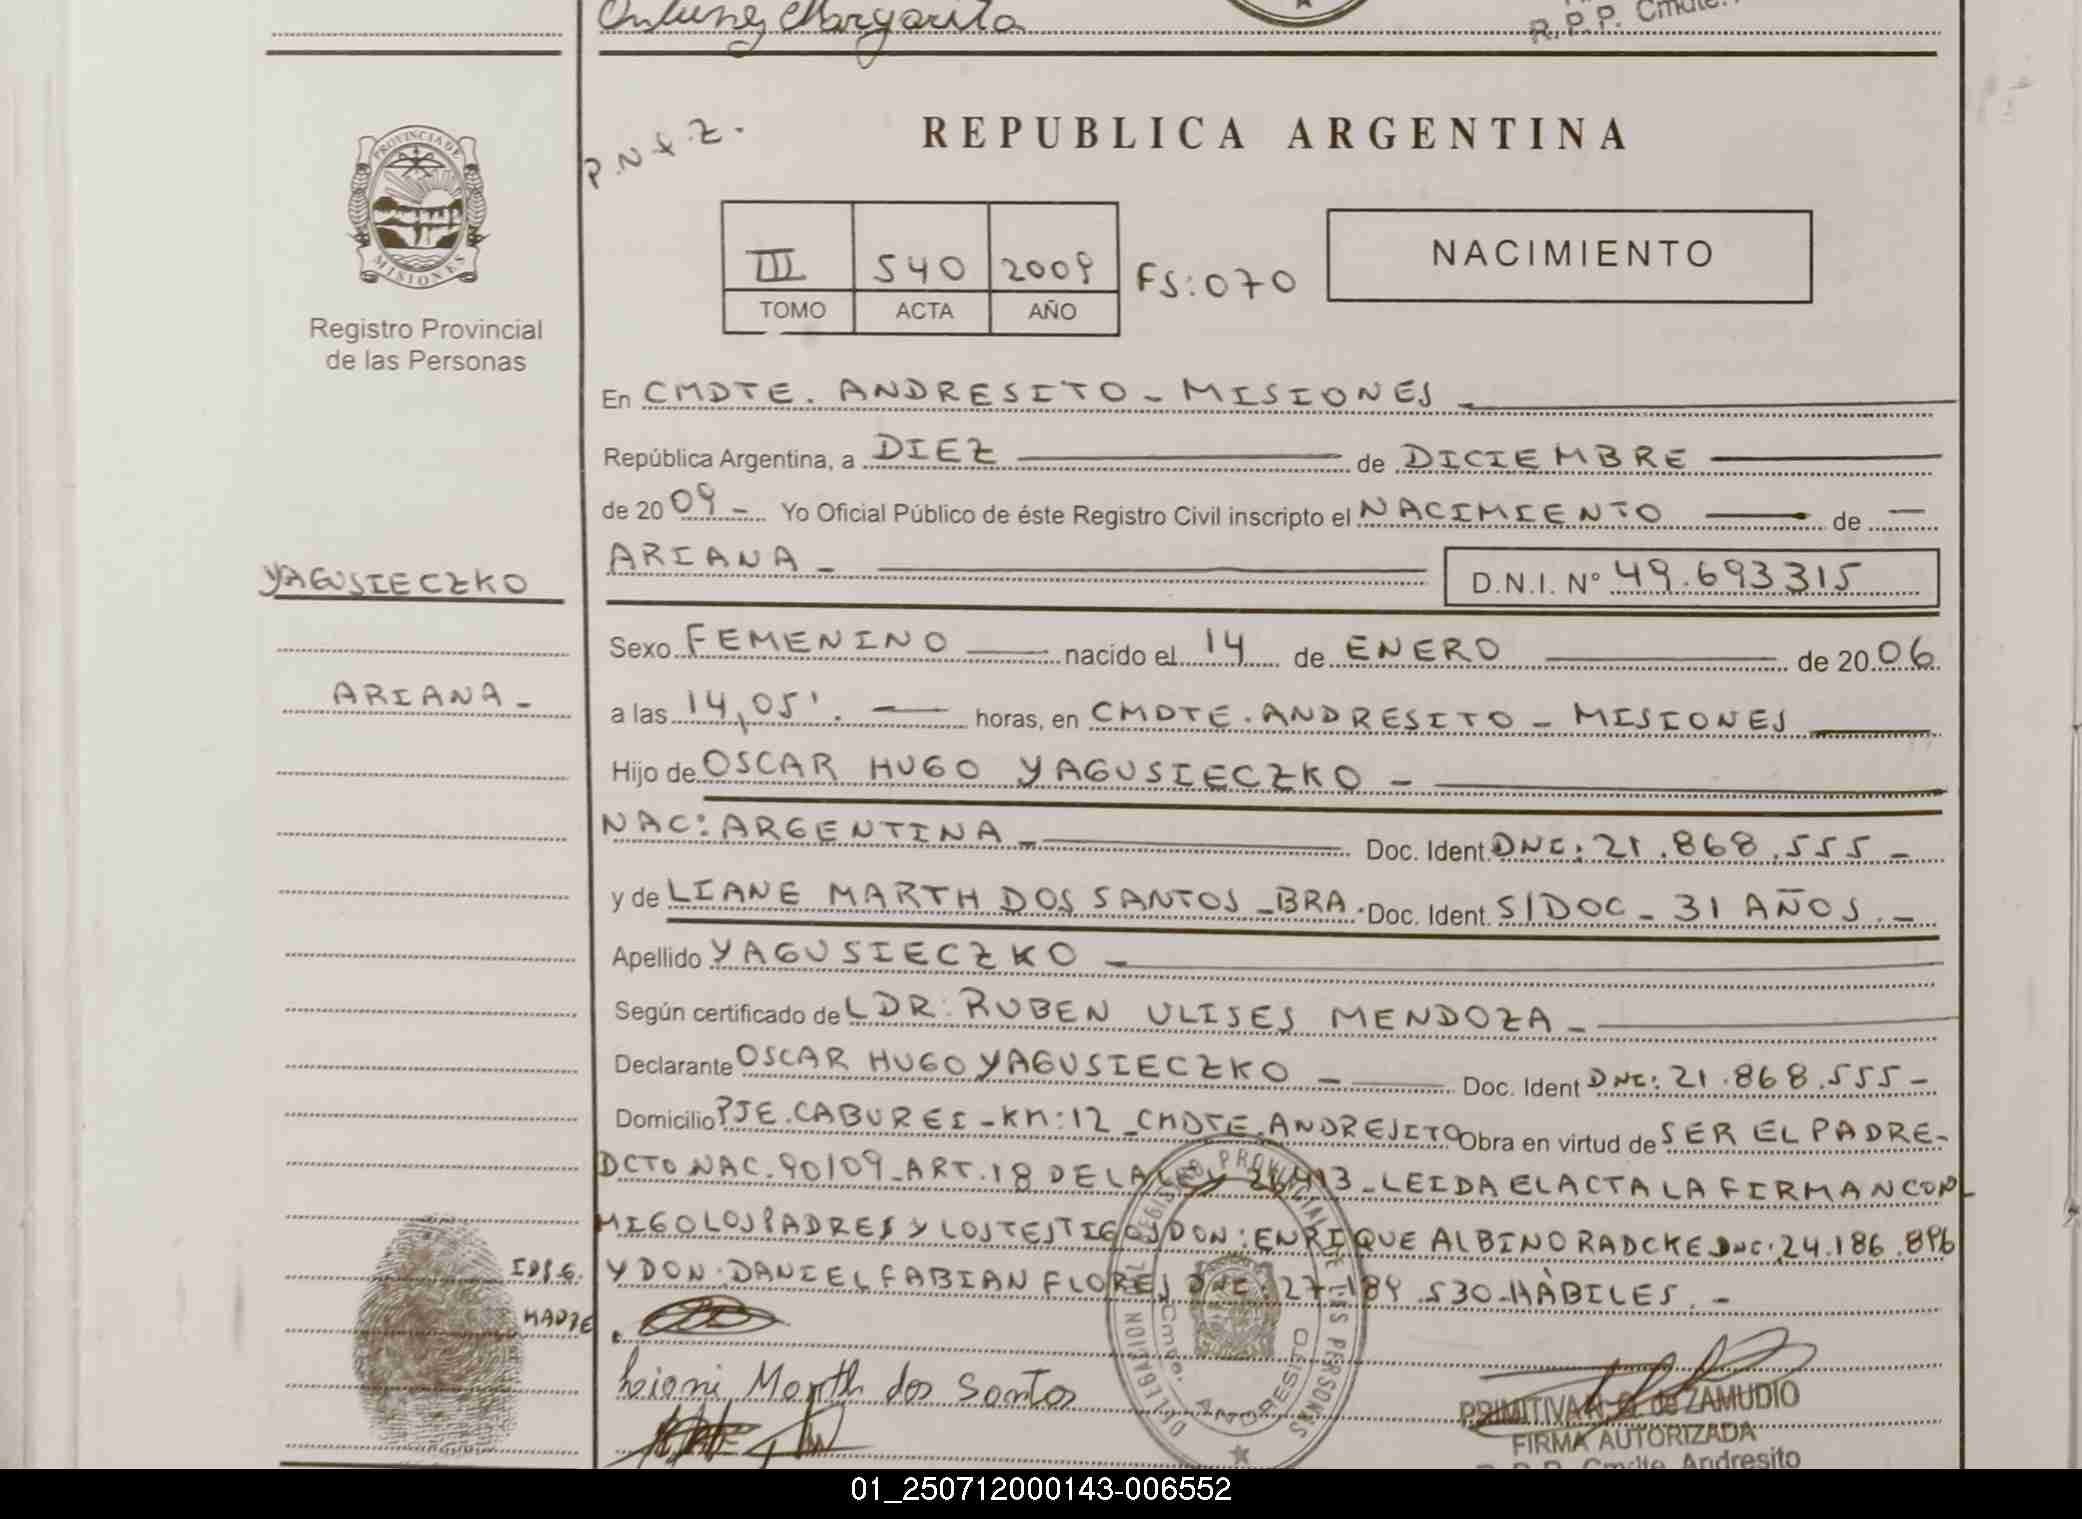 Margarita
R.P.P. Cmdte.
PROVINCIA DE
MISIONES
Registro Provincial
de las Personas
P.N x Z.
REPUBLICA ARGENTINA
III 540 2009 FS:070
TOMO ACTA AÑO
NACIMIENTO
En CMDTE. ANDRESITO - MISIONES
República Argentina, a DIEZ de DICIEMBRE
de 2009 - Yo Oficial Público de éste Registro Civil inscripto el NACIMIENTO de
ARIANA - D.N.I. Nº 49.693315
YAGUSIECZKO
Sexo FEMENINO nacido el 14 de ENERO de 2006
ARIANA -
a las 14,05'. horas, en CMDTE. ANDRESITO - MISIONES
Hijo de OSCAR HUGO YAGUSIECZKO -
NAC: ARGENTINA - Doc. Ident. DNI: 21.868.555 -
y de LIANE MARTH DOS SANTOS - BRA. Doc. Ident. S/DOC - 31 AÑOS. -
Apellido YAGUSIECZKO -
Según certificado de LDR: RUBEN ULISES MENDOZA -
Declarante OSCAR HUGO YAGUSIECZKO - Doc. Ident DNI: 21.868.555 -
Domicilio PJE. CABUREI - KM: 12 - CMDTE. ANDRESITO Obra en virtud de SER EL PADRE -
DCTO NAC. 90/09 - ART. 18 DE LA LEY 26413 - LEIDA EL ACTA LA FIRMAN CON
MIGO LOS PADRES Y LOS TESTIGOS DON: ENRIQUE ALBINO RADCKE DNI: 24.186.896
Y DON: DANIEL FABIAN FLORES DNI: 27.189.530 - HÀBILES. -
MADRE
Marth dos Santos
DELEGACION REGISTRO PROVINCIAL DE LAS PERSONAS
Cmdte. ANDRESITO
PRIMITIVA de ZAMUDIO
FIRMA AUTORIZADA
R.P.P. Cmdte. Andresito
01_250712000143-006552